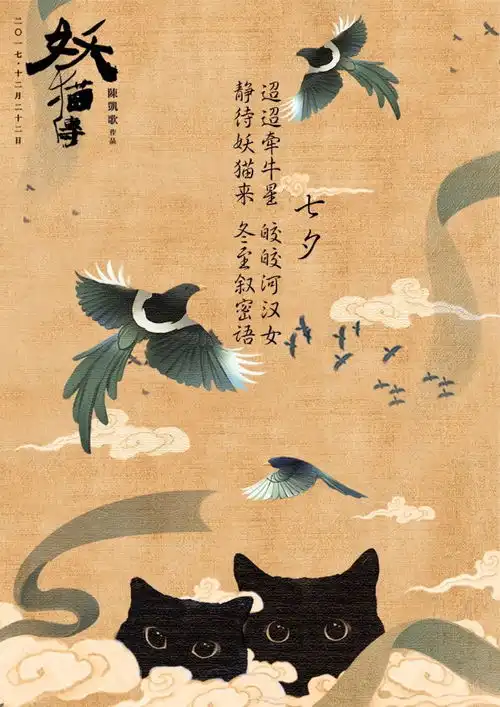 七夕
迢迢牵牛星 皎皎河汉女
静待妖猫来 冬至叙密语
妖猫傳
陳凱歌 作品
二〇一七·十二月二十二日